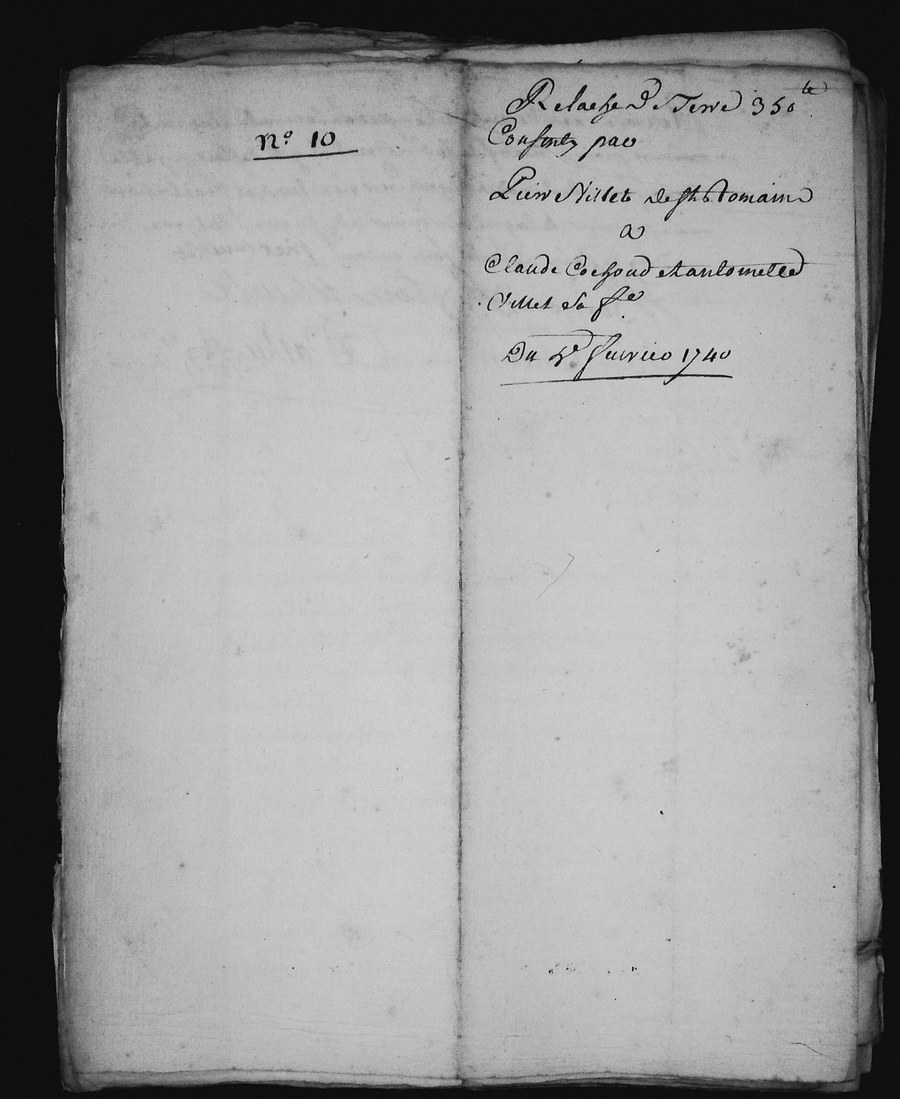 N.º 10
Relache de Terre 350 ᵗᵗ
Consenty par
Pierre Nillet de St Romain
a
Claude Cochoud et antomette
Villet sa fe
Du 4e fevrier 1740